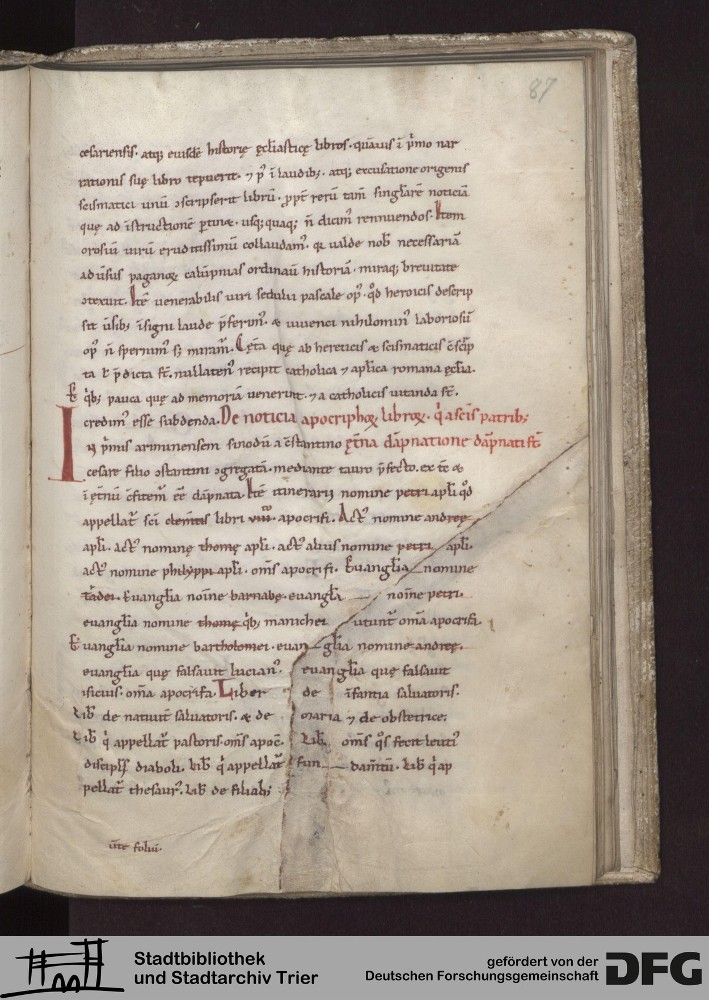 87
cesariensis. atq; eiusdē historię ęccl̄iasticę libros. quāuis ī p̄mo nar
rationis suę libro tepuerit. ⁊ p᷒ ī laudib;. atq; excusatione origenis
scismatici unū ↄscripserit librū. ꝓpt̄ rerū tam̄ singlarē noticiā
quę ad īstructionē ꝑtinæ. usq;quaq; n̄ dicim᷒ rennuendos. Item
orosiū uirū eruditissimū collaudam᷒. qi ualde nob̄ necessariā
aduersus paganoꝝ calūpnias ordinauit historiā. miraq; breuitate
ↄtexuit. Itē uenerabilis uiri sedulii pascale op᷒. qđ heroicis descrip
sit ūsib; īsigni laude p̄ferim᷒. & iuuenci nihilomin᷒ laboriosū
op᷒ n̄ spernim᷒ s; miram᷒. Cęt̄a quę ab hereticis & scismaticis c̄scp̄
ta ł p̄dicta st̄. nullaten᷒ recipit catholica ⁊ apl̄ica romana ęccl̄ia.
E q̄b; pauca quę ad memoriā uenerint. ⁊ a catholicis uitanda st̄.
credim᷒ esse subdenda. De noticia apocriphoꝝ libroꝝ. q̄ a sc̄is patrib;
In p̄mis ariminensem sinodū a c̄stantino ęt̄na dāpnatione dāpnati st̄
cesare filio ↄstantini ↄgregatā. mediante tauro p̄fecto. ex tē &
ī ęt̄nū c̄fitem᷒ eē dāpnata. Itē itinerariū nomine petri apl̄i qđ
appellat᷒ sc̄i clem̄tis libri viiii. apocrifi. Act᷒ nomine andreę
apl̄i. act᷒ nominę thomę apl̄i. act᷒ alius nomine petri apl̄i.
act᷒ nomine philyppi apl̄i. oms̄ apocrifi. Euanglīa nomine
tādei. Euanglīa noīne barnabę. euanglīa noīne petri.
euanglīa nomine thomę q̄b; manichei utunt᷒ omā apocrifa
Euanglīa nomine bartholomei. euanglīa nomine andreę.
euanglīa quę falsauit lucian᷒. euanglīa quę falsauit
isicius. omā apocrifa. Liber de īfantia saluatoris.
Lib̄ de natiuit̄ saluatoris. & de maria ⁊ de obstetrice;
Lib̄ q̄ appellat᷒ pastoris. oms̄ apoc̄. Lib̄. oms̄ q̄s fecit leuti᷒
discipls̄ diaboli. lib̄ q̄ appellat᷒ fundam̄tū. Lib̄ q̄ ap
pellat᷒ thesaur᷒. Lib̄ de filiab;
Stadtbibliothek
und Stadtarchiv Trier
gefördert von der
Deutschen Forschungsgemeinschaft
DFG